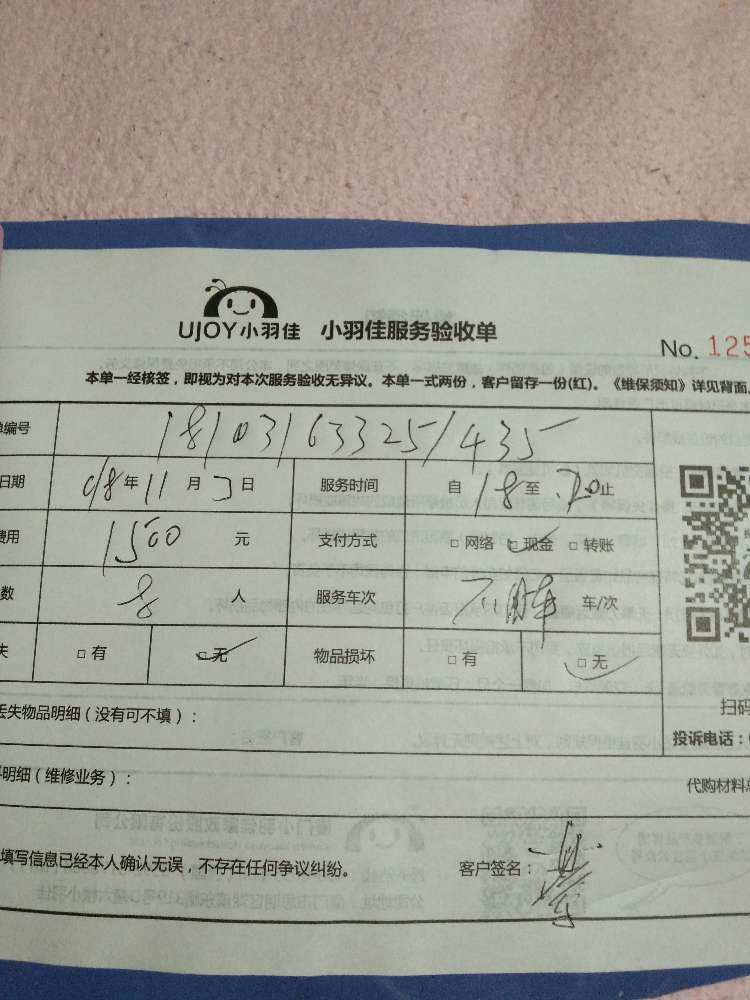 UJOY小羽佳 小羽佳服务验收单
No. 125
本单一经核签，即视为对本次服务验收无异议。本单一式两份，客户留存一份(红)。《维保须知》详见背面。
单编号 18103163325/435
日期 018年11月3日 服务时间 自18至20止
费用 1500元 支付方式 □网络 □现金 □转账
数 人 服务车次 车/次
失 □有 □无 物品损坏 □有 □无
扫码
丢失物品明细（没有可不填）：
投诉电话：
明细（维修业务）：
代购材料总
填写信息已经本人确认无误，不存在任何争议纠纷。 客户签名：